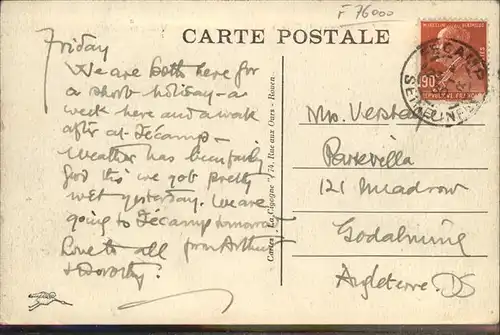 F 76000
CARTE POSTALE
Friday
We are both here for
a short holiday – a
week here and a week
after at Fécamp –
Weather has been fairly
good tho' we got pretty
wet yesterday. We are
going to Fécamp tomorrow
Love to all from Arthur
& Dorothy.
Cartes "La Cigogne" 74, Rue aux Ours - Rouen
FECAMP
SEINE INFRE
90
Mrs. Verstage
Parkvilla
121 Meadrow
Godalming
Angleterre.